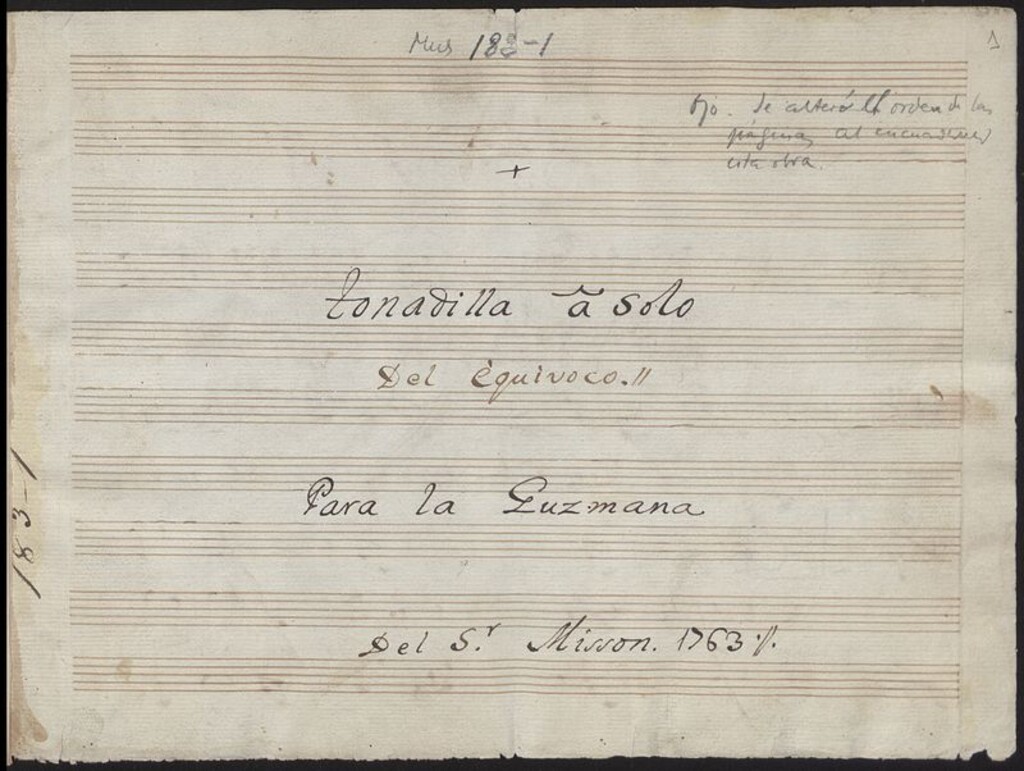 Mus 183-1
1
Ojo. Se alteró el orden de las
páginas al encuadernar
esta obra.
+
tonadilla â solo
Del équivoco.||
Para la Guzmana
Del S.r Misson. 1763.||.
183-1